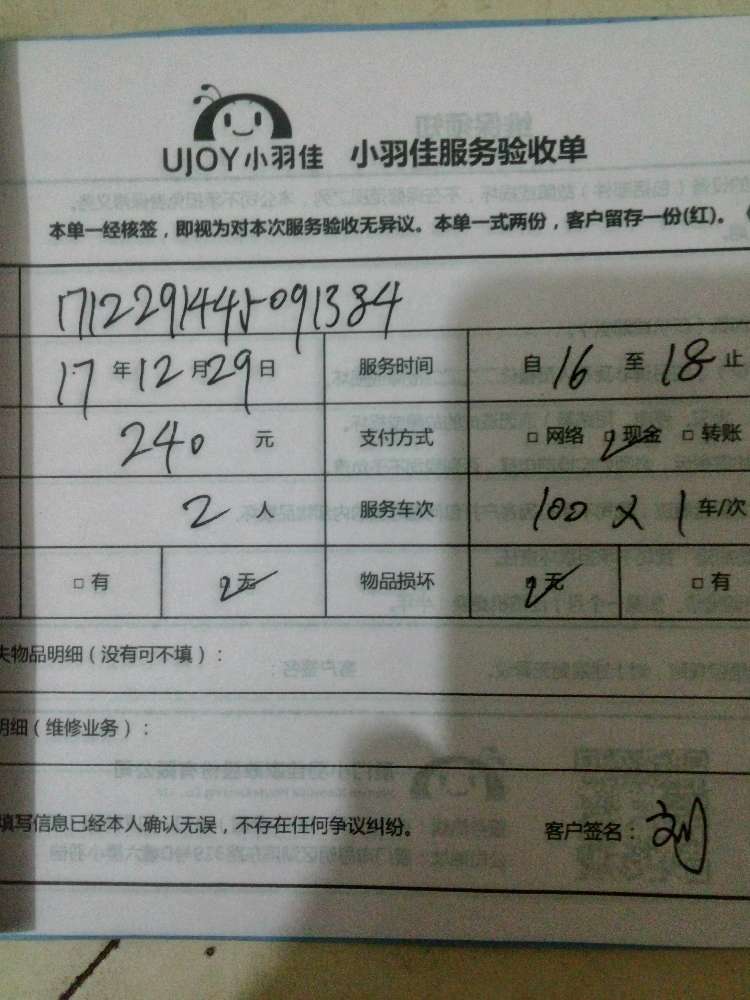 UJOY小羽佳 小羽佳服务验收单
本单一经核签，即视为对本次服务验收无异议。本单一式两份，客户留存一份(红)。
1712291445091384
17年12月29日 服务时间 自16至18止
240元 支付方式 □网络 ☑现金 □转账
2人 服务车次 100×1车/次
□有 ☑无 物品损坏 ☑无 □有
失物品明细（没有可不填）：
明细（维修业务）：
填写信息已经本人确认无误，不存在任何争议纠纷。 客户签名：刘